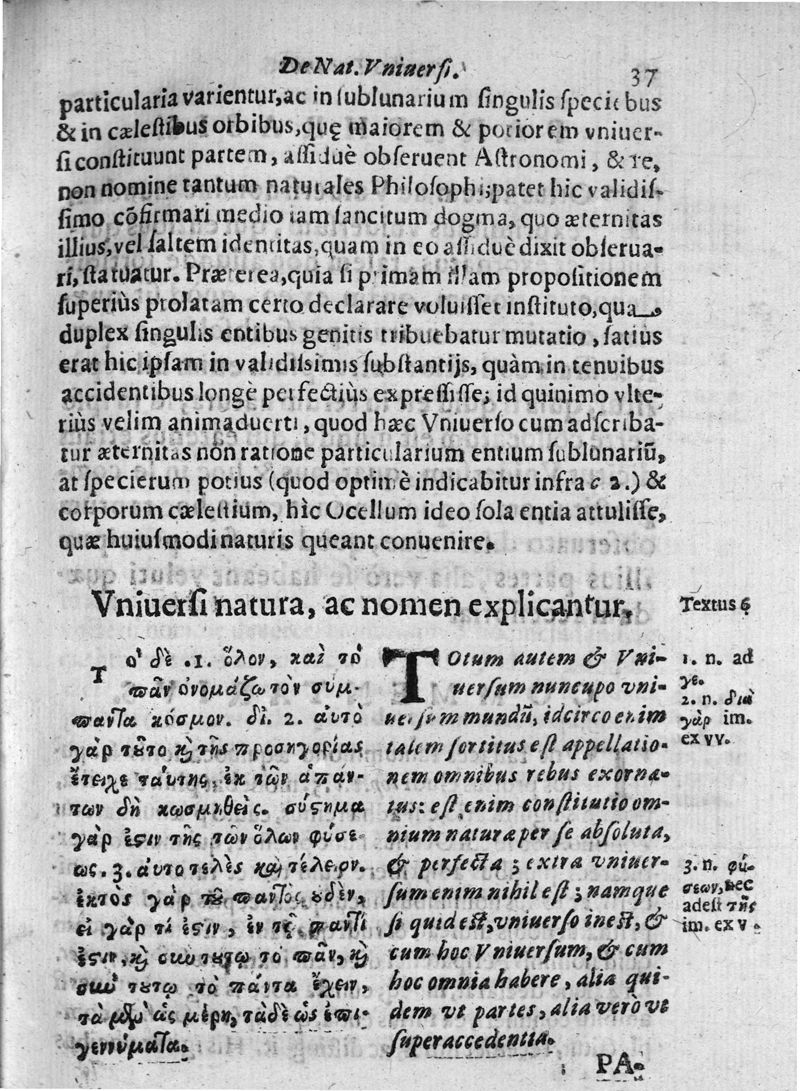 De Nat. Vniuersi.
37
particularia varientur, ac in sublunarium singulis speciebus
& in cælestibus orbibus, quę maiorem & potiorem vniuer-
si constituunt partem, assiduè obseruent Astronomi, & re,
non nomine tantum naturales Philosophi; patet hic validis-
simo cõfirmari medio iam sancitum dogma, quo æternitas
illius, vel saltem identitas, quam in eo assiduè dixit obserua-
ri, statuatur. Præterea, quia si primam illam propositionem
superiùs prolatam certo declarare voluisset instituto, qua
duplex singulis entibus genitis tribuebatur mutatio, satius
erat hic ipsam in validissimis substantijs, quàm in tenuibus
accidentibus longè perfectiùs expressisse; id quinimo vlte-
riùs velim animaduerti, quod hæc Vniuerso cum adscriba-
tur æternitas non ratione particularium entium sublunariũ,
at specierum potius (quod optimè indicabitur infra c 2.) &
corporum cælestium, hìc Ocellum ideo sola entia attulisse,
quæ huiusmodi naturis queant conuenire.
Vniuersi natura, ac nomen explicantur.
Textus 6
Τὸ δὲ .1. ὅλον, καὶ τὸ
πᾶν ὀνομάζω τὸν σύμ-
παντα κόσμον. δι. 2. αὐτὸ
γὰρ τοῦτο καὶ τῆς προσηγορίας
ἔτειχε ταύτης, ἐκ τῶν ἁπάν-
των δὴ κωσμηθείς. σύστημα
γάρ ἐστιν τῆς τῶν ὅλων φύσε
ως. 3. αὐτοτελὲς καὶ τέλειον.
ἐκτὸς γὰρ τοῦ παντὸς οὐδὲν,
εἰ γάρ τί ἐστιν, ἐν τῷ παντί
ἐστιν, καὶ σὺν τούτῳ τὸ πᾶν, καὶ
σὺν τούτῳ τὸ πάντα ἔχειν,
τὰ μὲν ὡς μέρη, τὰ δὲ ὡς ἐπι-
γεννήματα.
TOtum autem & Vni-
uersum nuncupo vni-
uersum mundũ, idcirco enim
talem sortitus est appellatio-
nem omnibus rebus exorna-
tus: est enim constitutio om-
nium naturæ per se absoluta,
& perfecta; extra vniuer-
sum enim nihil est; namque
si quid est, vniuerso inest, &
cum hoc Vniuersum, & cum
hoc omnia habere, alia qui-
dem vt partes, alia verò vt
superaccedentia.
1. n. ad
γε.
2. n. διὰ
γὰρ im.
ex vv.
3. n. φύ-
σεων, nec
adest τῆς
im. ex v.
PA-